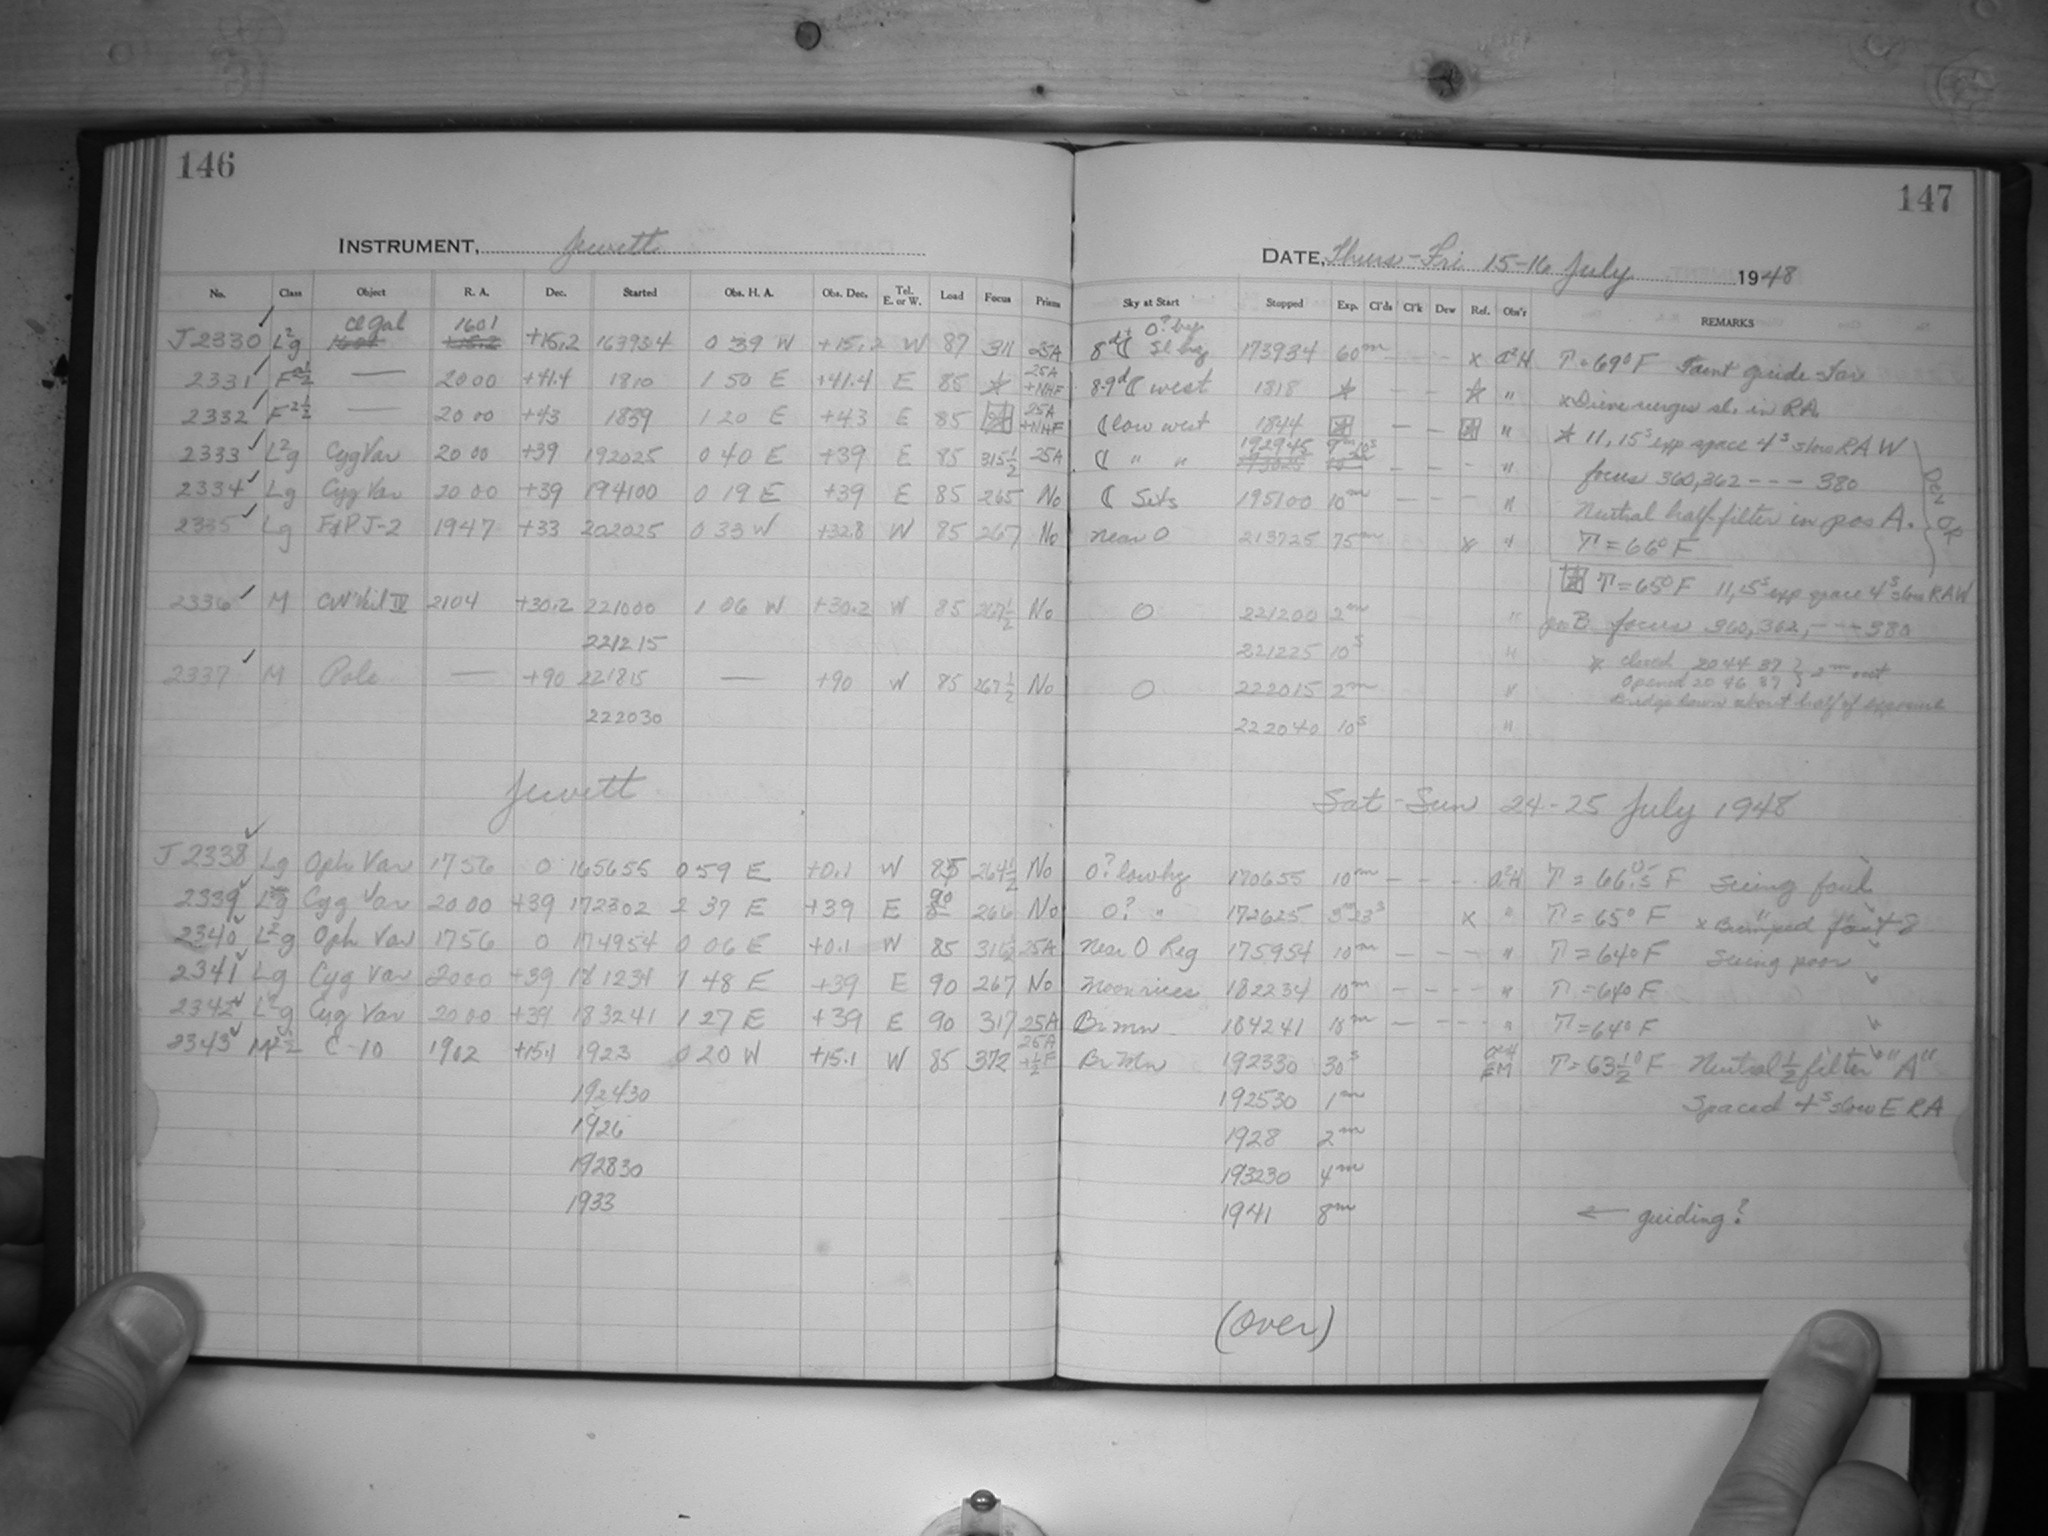 146
147
INSTRUMENT, Jewett
DATE, Thurs-Fri 15-16 July 1948
No. Class Object R. A. Dec. Started Obs. H. A. Obs. Dec. Tel. E. or W. Load Focus Prism Sky at Start Stopped Exp. Cl'ds Cl'k Dew Ref. Obs'r REMARKS
J2330 L²g Cl Gal 1601 +15.2 163934 0 39 W +15.2 W 87 311 25A 173934 60m - - - x T=69°F Faint guide star
2331 F — 2000 +41.4 1810 1 50 E +41.4 E 85 * 25A 8-9d ☾ west 1818 * - - * "
2332 F 2½ — 20 00 +43 1839 1 20 E +43 E 85 25A ☾ low west 1844 - - "
* 11, 15s exp space 4s slow RA W
2333 L²g Cyg Var 20 00 +39 192025 0 40 E +39 E 85 315½ 25A ☾ " " 192945 - - - "
focus 360, 362 - - - 380
2334 Lg Cyg Var 20 00 +39 194100 0 19 E +39 E 85 265 No ☾ Sets 195100 10m - - - "
Neutral half-filter in pos A.
2335 Lg J-2 1947 +33 202025 0 33 W +32.8 W 85 267 No near 0 213725 75m x "
T=66°F
T=65°F 11, 15s exp space 4s slow RA W
2336 M IV 2104 +30.2 221000 1 06 W +30.2 W 85 267½ No 0 221200 2m "
pos B focus 360, 362, - - - 380
221215 221225 10s "
* closed 20 44 37
Opened 20 46 37
2337 M Pole — +90 221815 — +90 W 85 267½ No 0 222015 2m "
Bridge down about half of exposure
222030 222040 10s "
Jewett
Sat-Sun 24-25 July 1948
J2338 Lg Oph Var 1756 0 165655 0 59 E +0.1 W 85 264½ No 0? low hzy 170655 10m - - - - T=66.5°F Seeing foul
2339 Cyg Var 20 00 +39 172302 2 37 E +39 E 90 266 No 0? " 172625 3m 23s x " T=65°F
2340 L²g Oph Var 1756 0 174954 0 06 E +0.1 W 85 25A Near 0 Reg 175954 10m - - - - " T=64°F Seeing poor
2341 Lg Cyg Var 2000 +39 181234 1 48 E +39 E 90 267 No Moon rises 182234 10m - - - - " T=64°F
2342 L²g Cyg Var 20 00 +39 183241 1 27 E +39 E 90 317 25A Br mn 184241 10m - - - - " T=64°F
2343 C-10 1902 +15.1 1923 0 20 W +15.1 W 85 372 25A Br Mn 192330 30s T=63½°F Neutral ½ filter "A"
192430 192530 1m Spaced 4s slow E RA
1926 1928 2m
192830 193230 4m
1933 1941 8m ← guiding?
(over)